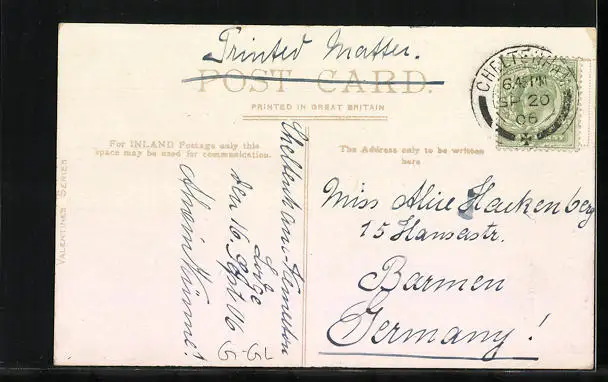 Printed Matter.
POST CARD.
PRINTED IN GREAT BRITAIN
For INLAND Postage only this
space may be used for communication.
The Address only to be written
here
VALENTINES SERIES
CHELTENHAM
SP 20
06
Lodge
den 16. Sept 06
G-GL
Miss Alice Hackenberg
15 Hansastr.
Barmen
Germany!